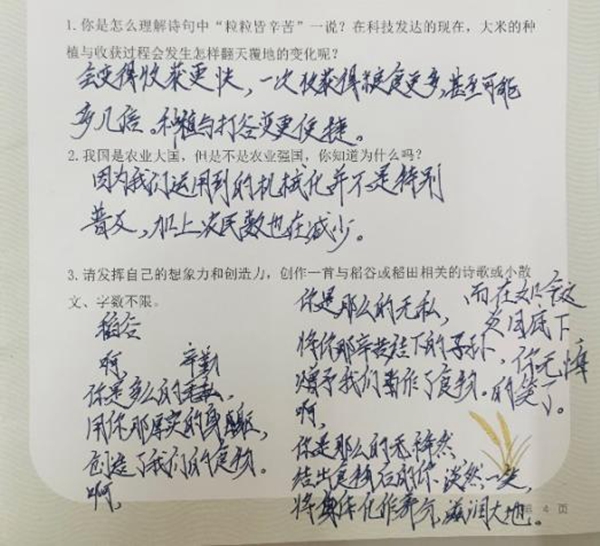 1.你是怎么理解诗句中“粒粒皆辛苦”一说？在科技发达的现在，大米的种
植与收获过程会发生怎样翻天覆地的变化呢？
会变得收获更快，一次收获得粮食更多，甚至可能
多几倍。种植与打谷变更便捷。
2.我国是农业大国，但是不是农业强国，你知道为什么吗？
因为我们运用到的机械化并不是特别
普及，加上农民数也在减少。
3.请发挥自己的想象力和创造力，创作一首与稻谷或稻田相关的诗歌或小散
文、字数不限。
稻谷
啊， 辛勤
你是多么的无私，
用你那厚实的身躯，
创造了我们的食物。
啊，
你是那么的无私，
将你那辛苦结下的子孙，
赠予我们当作了食物。
啊，
你是那么的无
结出食物后的你淡然一笑，
将身体化作养分，滋润大地。
而在
炎阳底下
你无悔
的笑了。
第 4 页